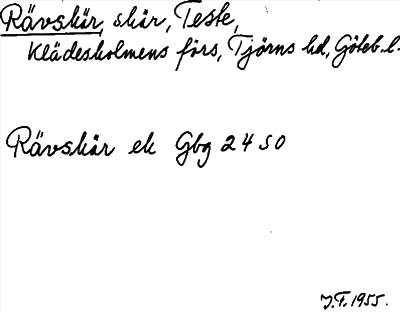 Rävskär, skär, Teste,
Klädesholmens förs, Tjörns hd, Göteb. l.
Rävskär ek Gbg 2450
J.F. 1955.